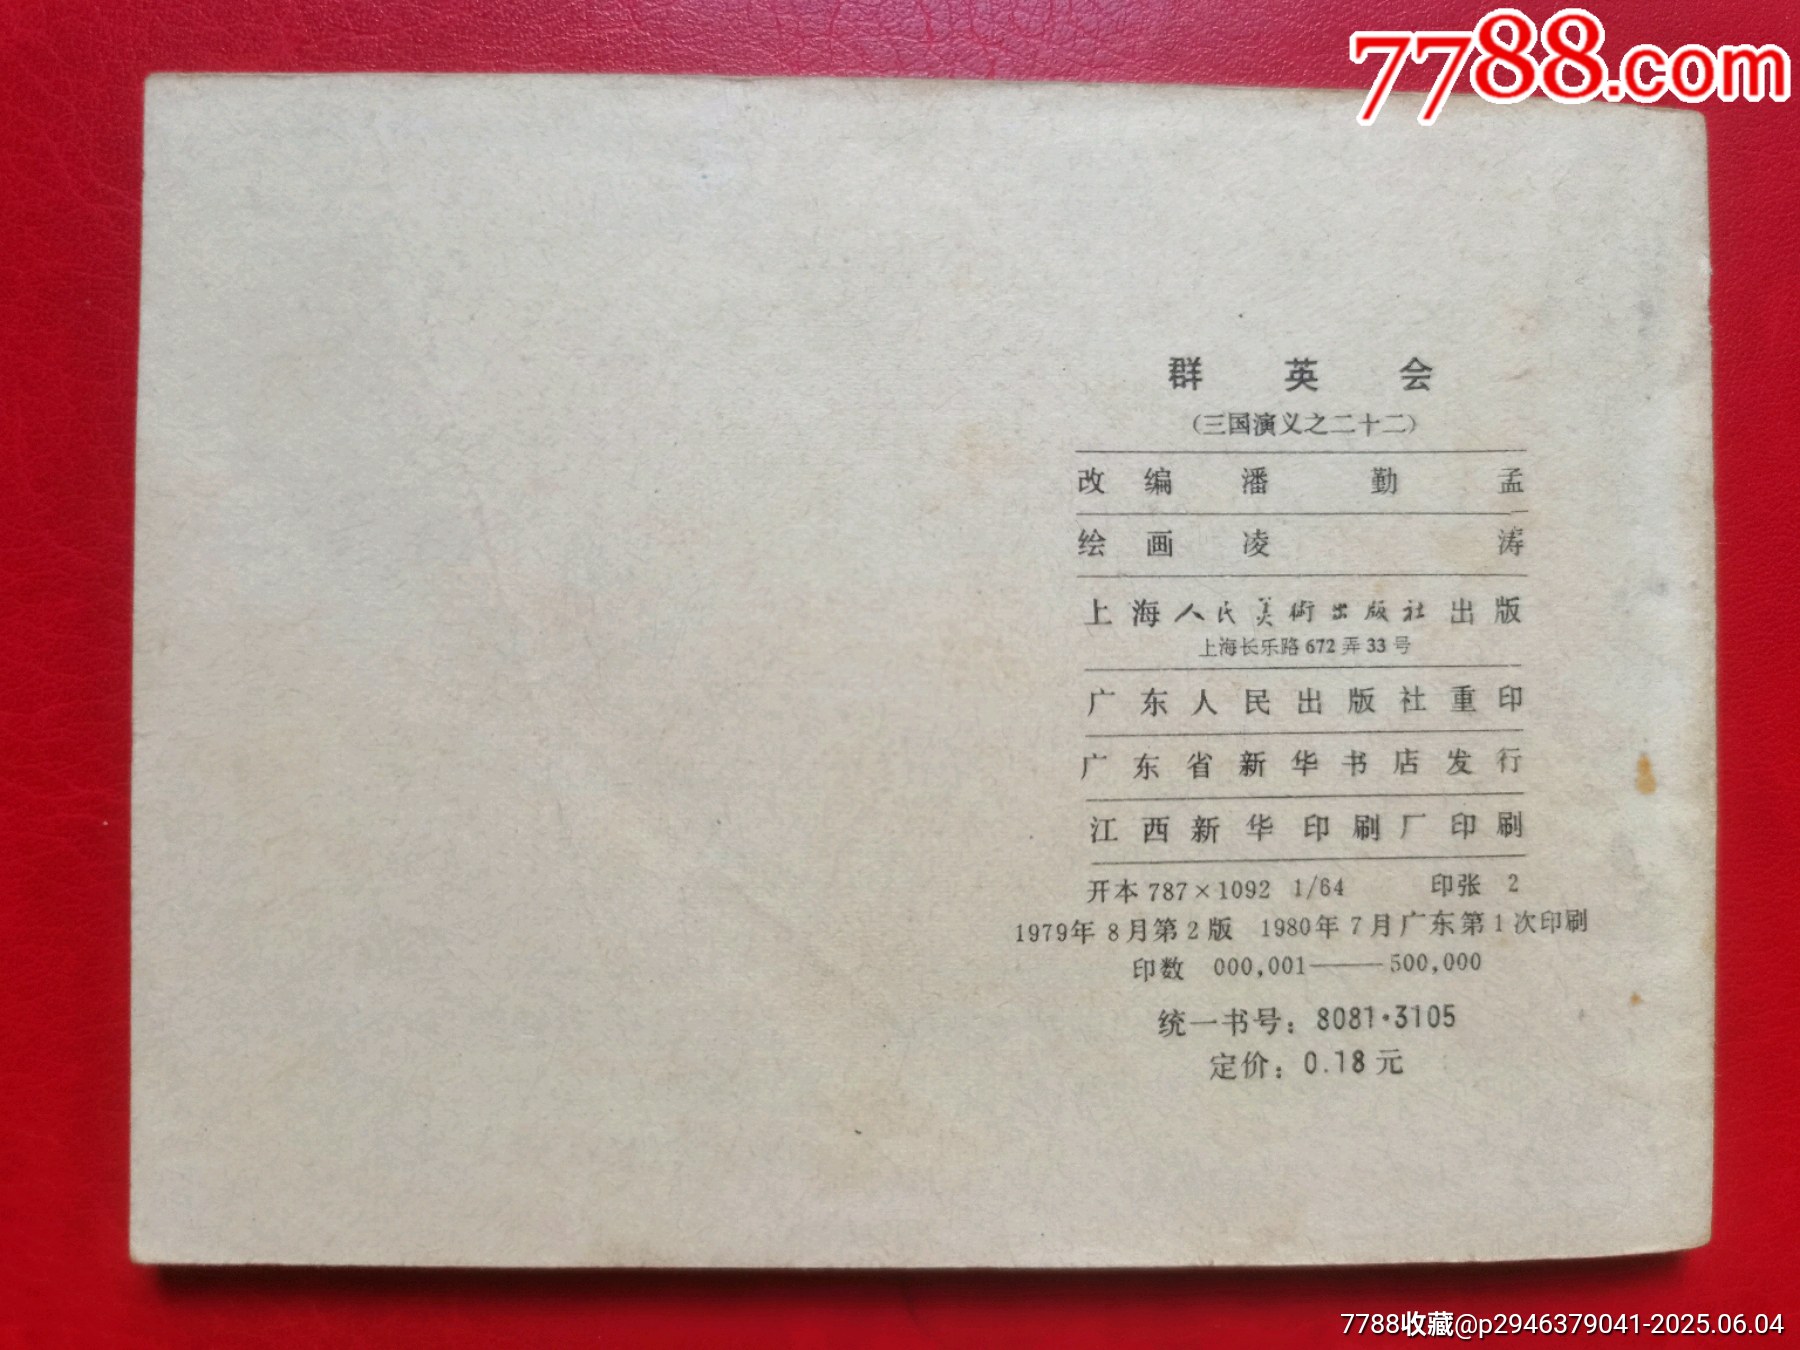 7788.com
群英会
(三国演义之二十二)
改编 潘勤孟
绘画 凌涛
上海人民美術出版社出版
上海长乐路672弄33号
广东人民出版社重印
广东省新华书店发行
江西新华印刷厂印刷
开本 787×1092 1/64 印张 2
1979年8月第2版 1980年7月广东第1次印刷
印数 000,001——500,000
统一书号：8081·3105
定价：0.18元
7788收藏@p2946379041-2025.06.04